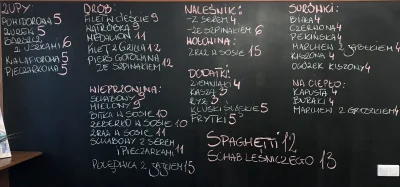 ZUPY:
POMIDOROWA 5
ŻUREK 5
BARSZCZ
Z USZKAMI 6
KALAFIOROWA 5
PIECZARKOWA 5
DRÓB:
FILET W CIEŚCIE 9
WĄTRÓBKA 9
MEDALION 11
FILET Z GRILLA 12
PIERŚ GOTOWANA
ZE SZPINAKIEM 12
WIEPRZOWINA:
SCHABOWY 9
MIELONY 9
BITKA W SOSIE 10
ŻEBERKO W SOSIE 10
ZRAZ W SOSIE 11
SCHABOWY Z SEREM
I PIECZARKAMI 11
POLĘDWICA Z 15
NALEŚNIKI:
-Z SEREM 4
-ZE SZPINAKIEM 6
WOŁOWINA:
ZRAZ W SOSIE 15
DODATKI:
ZIEMNIAKI 4
KASZA 3
RYŻ 3
KLUSKI ŚLĄSKIE 5
FRYTKI 5
SPAGHETTI 12
SCHAB LEŚNICZEGO 13
SURÓWKI:
BIAŁA 4
CZERWONA 4
PEKIŃSKA 4
MARCHEW Z JABŁKIEM 4
KISZONA 4
OGÓREK KISZONY 4
NA CIEPŁO:
KAPUSTA 4
BURAKI 4
MARCHEW Z GROSZKIEM 4